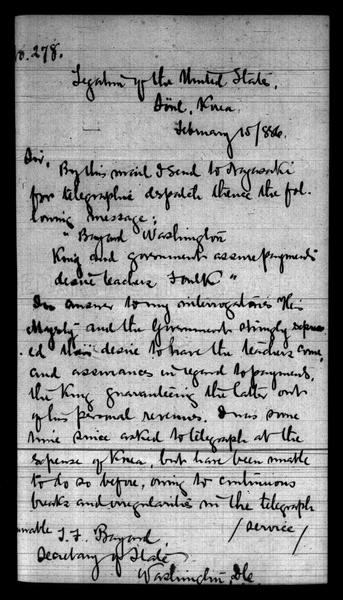 No. 278.
Legation of the United States,
Söul, Korea,
February 10/886.
Sir,
By this mail I send to Nagasaki
for telegraphic dispatch thence the fol-
lowing message;
"Bayard Washington
King and government assure payments
desire teachers Foulk"
In answer to my interrogatories His
Majesty and the Government strongly express-
ed their desire to have the teachers come,
and assurances in regard to payments,
the King guaranteeing the latter out
of his personal revenues. I was some
time since asked to telegraph at the
expense of Korea, but have been unable
to do so before, owing to continuous
breaks and irregularities in the telegraph
/service/
T. F. Bayard,
Secretary of State
Washington, D.C.